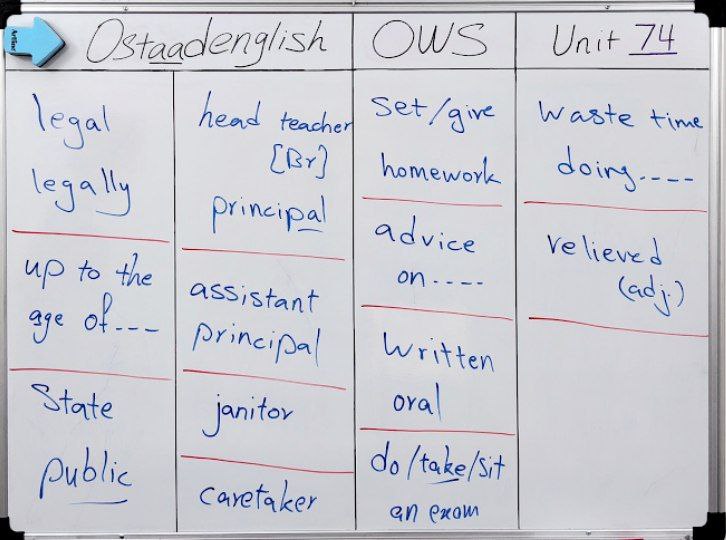 Ostaadenglish
OWS
Unit 74
legal
legally
up to the
age of---
State
public
head teacher
[Br]
principal
assistant
principal
janitor
caretaker
set/give
homework
advice
on----
written
oral
do/take/sit
an exam
waste time
doing----
relieved
(adj.)